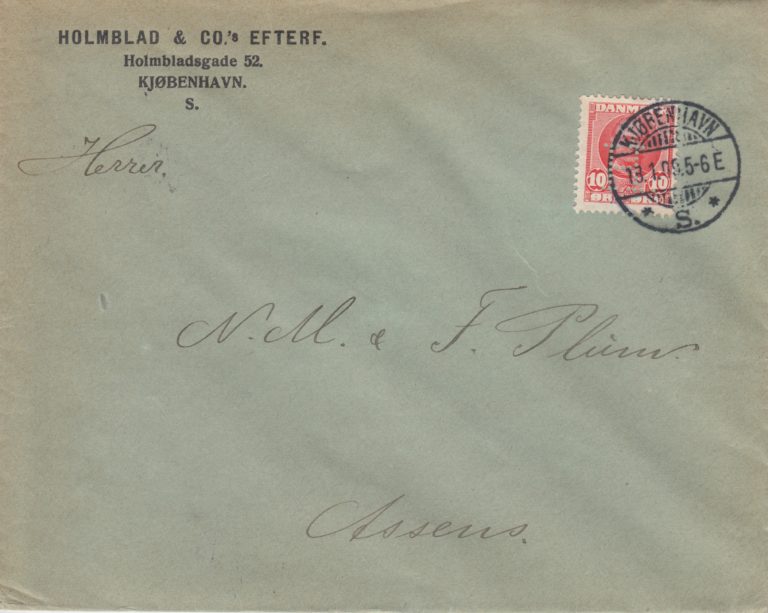 HOLMBLAD & CO.'s EFTERF.
Holmbladsgade 52.
KJØBENHAVN.
S.
DANM
10 10
ØRE
KJØBENHAVN
13.1.09.5-6 E
* S. *
Herrer.
N. M. & F. Plum.
Assens.